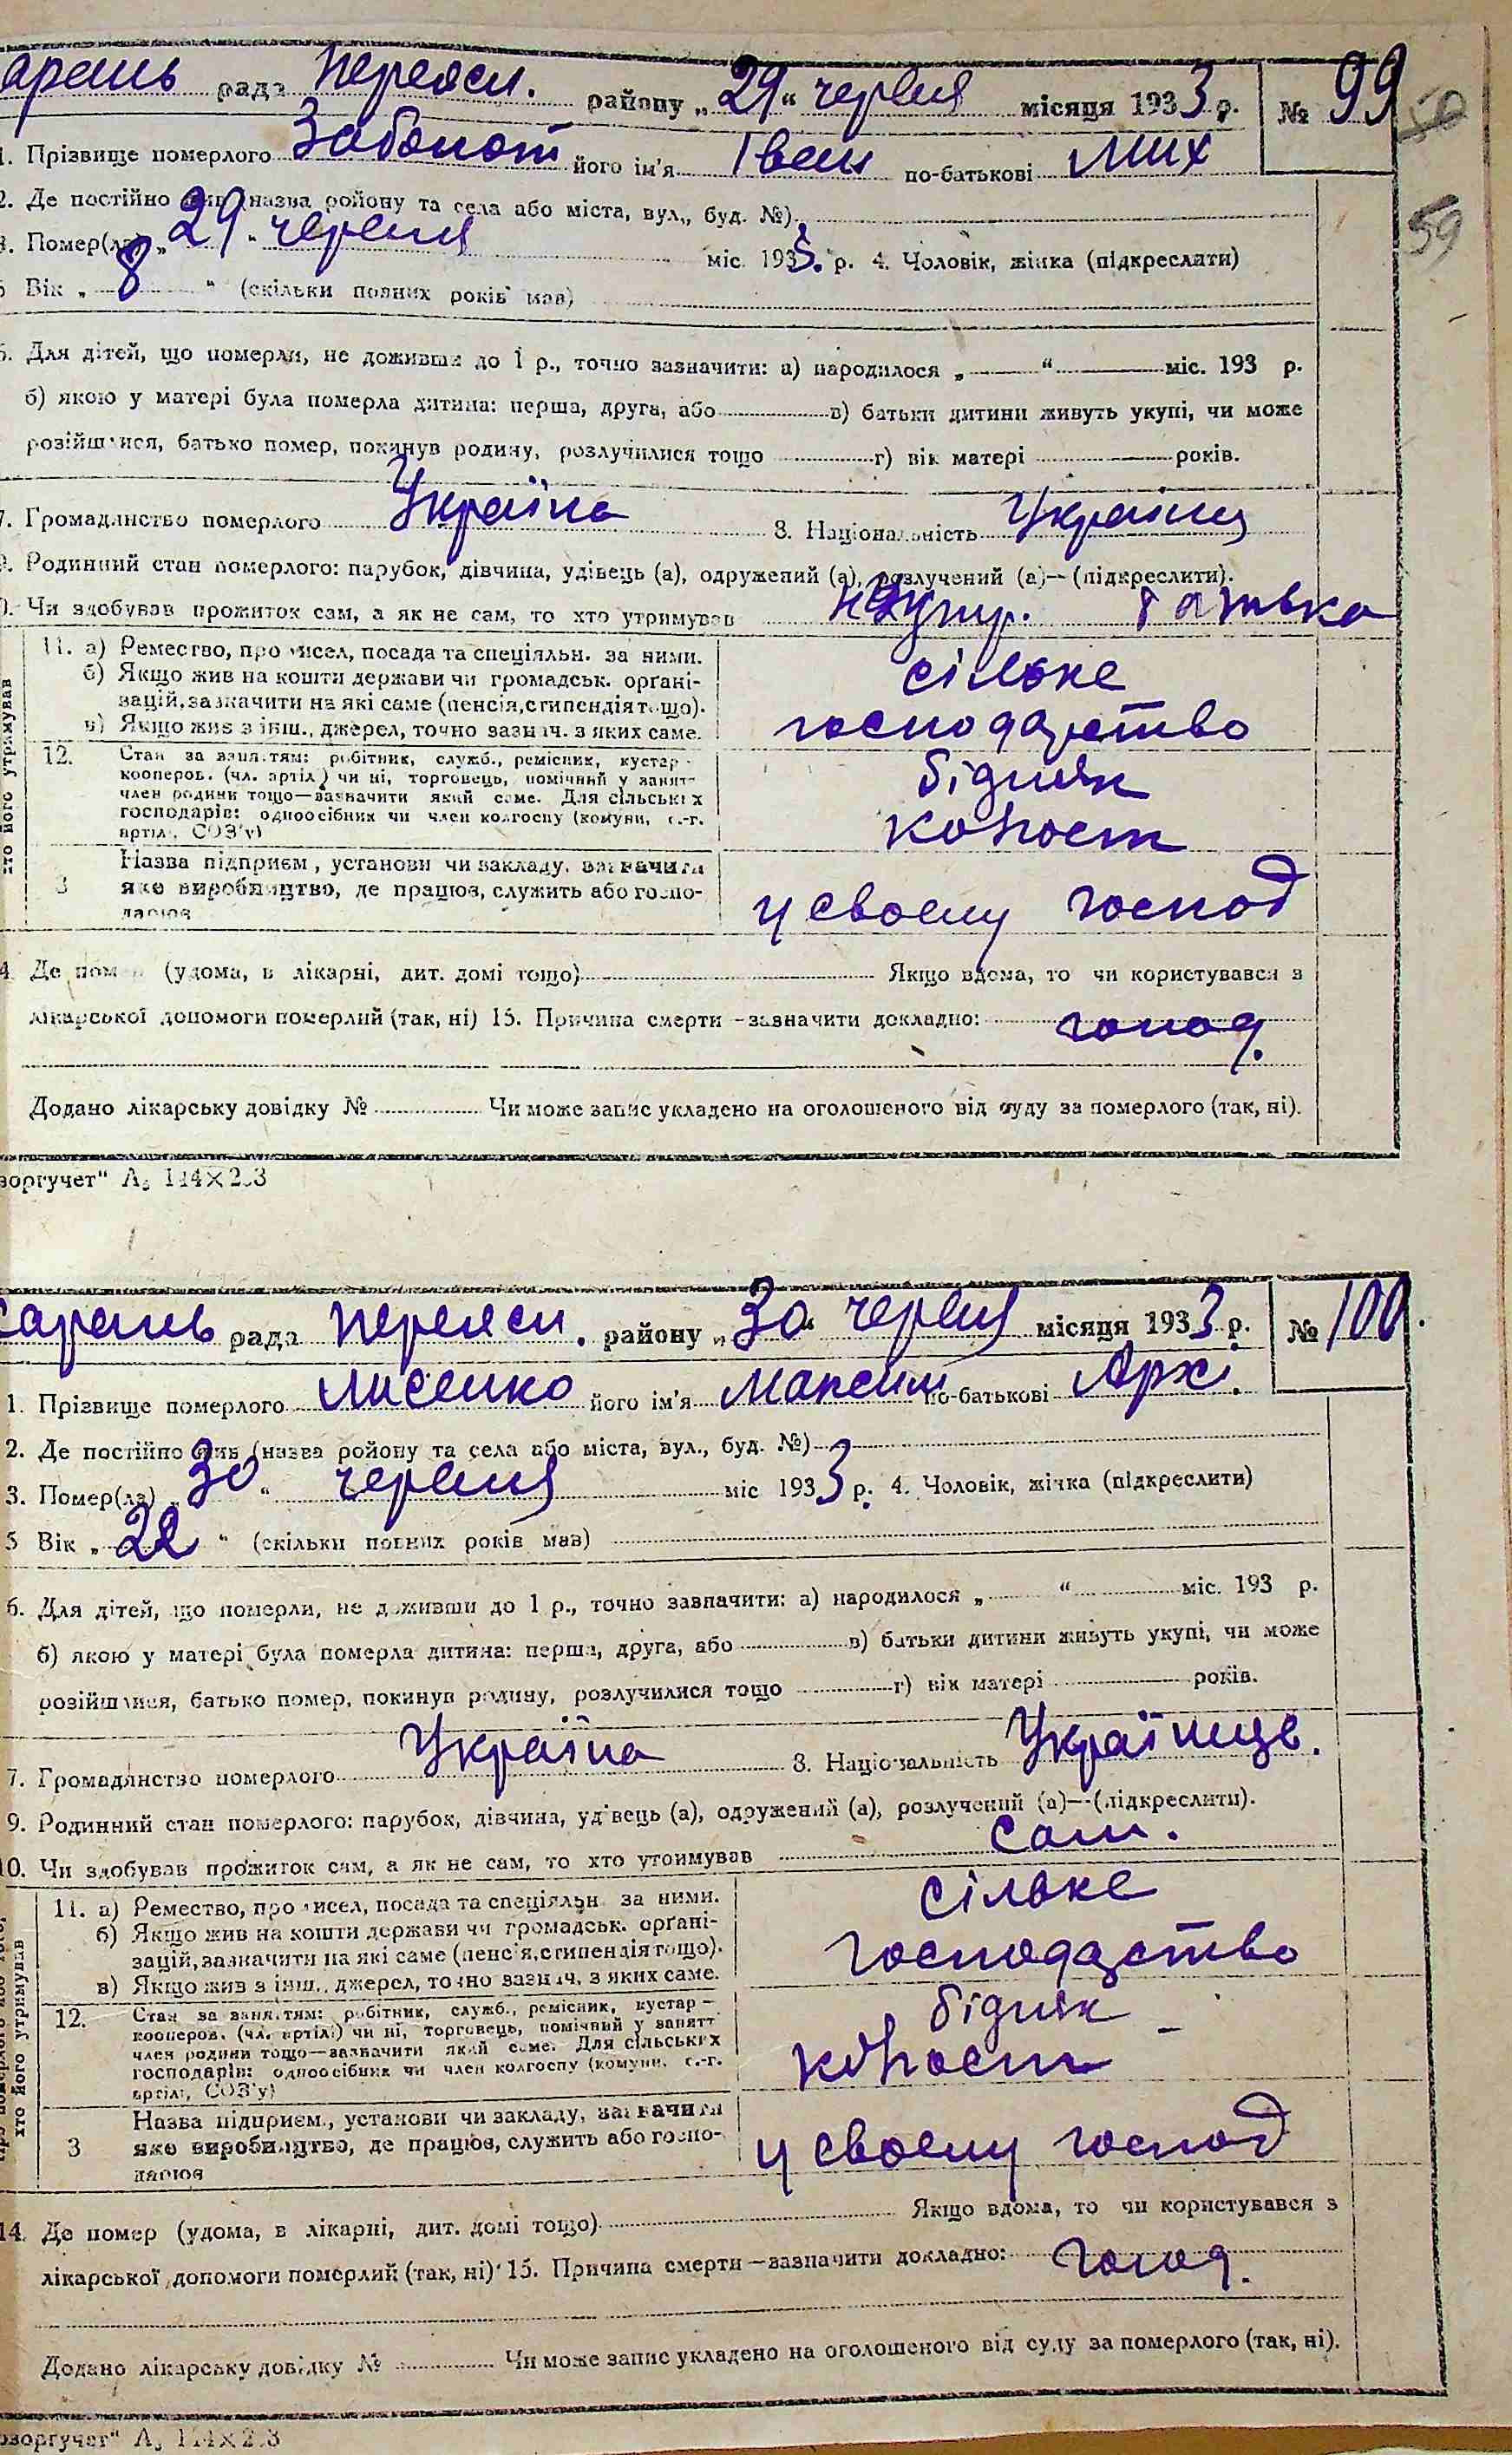 арань рада Переясл. району „29“ червня місяця 1933 р. № 99
50
1. Прізвище померлого Заболот його ім'я Іван по-батькові Мих
59
2. Де постійно жив (назва ройону та села або міста, вул., буд. №)
3. Помер(ла) „29“ червня міс. 1933 р. 4. Чоловік, жінка (підкреслити)
5 Вік „8“ (скільки повних років мав)
6. Для дітей, що померли, не доживши до 1 р., точно зазначити: а) народилося „ “ міс. 193 р.
б) якою у матері була померла дитина: перша, друга, або в) батьки дитини живуть укупі, чи може
розійшлися, батько помер, покинув родину, розлучилися тощо г) вік матері років.
7. Громадянство померлого Україна 8. Національність Українц
9. Родинний стан померлого: парубок, дівчина, удівець (а), одружений (а), розлучений (а)— (підкреслити).
10. Чи здобував прожиток сам, а як не сам, то хто утримував батька
11. а) Ремество, промисел, посада та спеціяльн. за ними. сільске
б) Якщо жив на кошти держави чи громадськ. орґані-
зацій, зазначити на які саме (пенсія, стипендія тощо).
в) Якщо жив з інш., джерел, точно зазнач. з яких саме. господарство
хто його утримував
12. Стан за занят.тям: робітник, служб., ремісник, кустар - бідняк
кооперов. (чл. артіл.) чи ні, торговець, помічний у занят-
член родини тощо—зазначити який саме. Для сільських
господарів: одноосібник чи член колгоспу (комуни, с.-г. колгосп
артіл., СОЗ'у)
Назва підприєм., установи чи закладу, зазначити
3 яке виробництво, де працює, служить або госпо- у своєму господ
дарює
4. Де помер (удома, в лікарні, дит. домі тощо) Якщо вдома, то чи користувався з
лікарської допомоги померлий (так, ні) 15. Причина смерти — зазначити докладно: голод.
Додано лікарську довідку № Чи може запис укладено на оголошеного від суду за померлого (так, ні).
воргучет“ А₅ 114×2.3
Карань рада Переясл. району „30“ червня місяця 1933 р. № 100.
1. Прізвище померлого Лисенко його ім'я Максим по-батькові Арх.
2. Де постійно жив (назва ройону та села або міста, вул., буд. №)
3. Помер(ла) „30“ червня міс 1933 р. 4. Чоловік, жінка (підкреслити)
5 Вік „22“ (скільки повних років мав)
6. Для дітей, що померли, не доживши до 1 р., точно зазначити: а) народилося „ “ міс. 193 р.
б) якою у матері була померла дитина: перша, друга, або в) батьки дитини живуть укупі, чи може
розійшлися, батько помер, покинув родину, розлучилися тощо г) вік матері років.
7. Громадянство померлого Україна 8. Національність Українце.
9. Родинний стан померлого: парубок, дівчина, удівець (а), одружений (а), розлучений (а)—(підкреслити).
10. Чи здобував прожиток сам, а як не сам, то хто утримував сам.
11. а) Ремество, промисел, посада та спеціяльн за ними. сільске
б) Якщо жив на кошти держави чи громадськ. орґані-
зацій, зазначити на які саме (пенсія, стипендія тощо). господарство
в) Якщо жив з інш., джерел, точно зазнач. з яких саме.
хто його утримував
12. Стан за занят.тям: робітник, служб., ремісник, кустар — бідняк
кооперов. (чл. артіл.) чи ні, торговець, помічний у занятт
член родини тощо—зазначити який саме. Для сільських
господарів: одноосібник чи член колгоспу (комуни, с.-г. колгосп
артіл., СОЗ'у)
Назва підприєм., установи чи закладу, зазначити
3 яке виробництво, де працює, служить або госпо- у своєму господ
дарює
14. Де помер (удома, в лікарні, дит. домі тощо) Якщо вдома, то чи користувався з
лікарської допомоги померлий (так, ні) 15. Причина смерти — зазначити докладно: голод.
Додано лікарську довідку № Чи може запис укладено на оголошеного від суду за померлого (так, ні).
воргучет“ А₅ 114×2.3